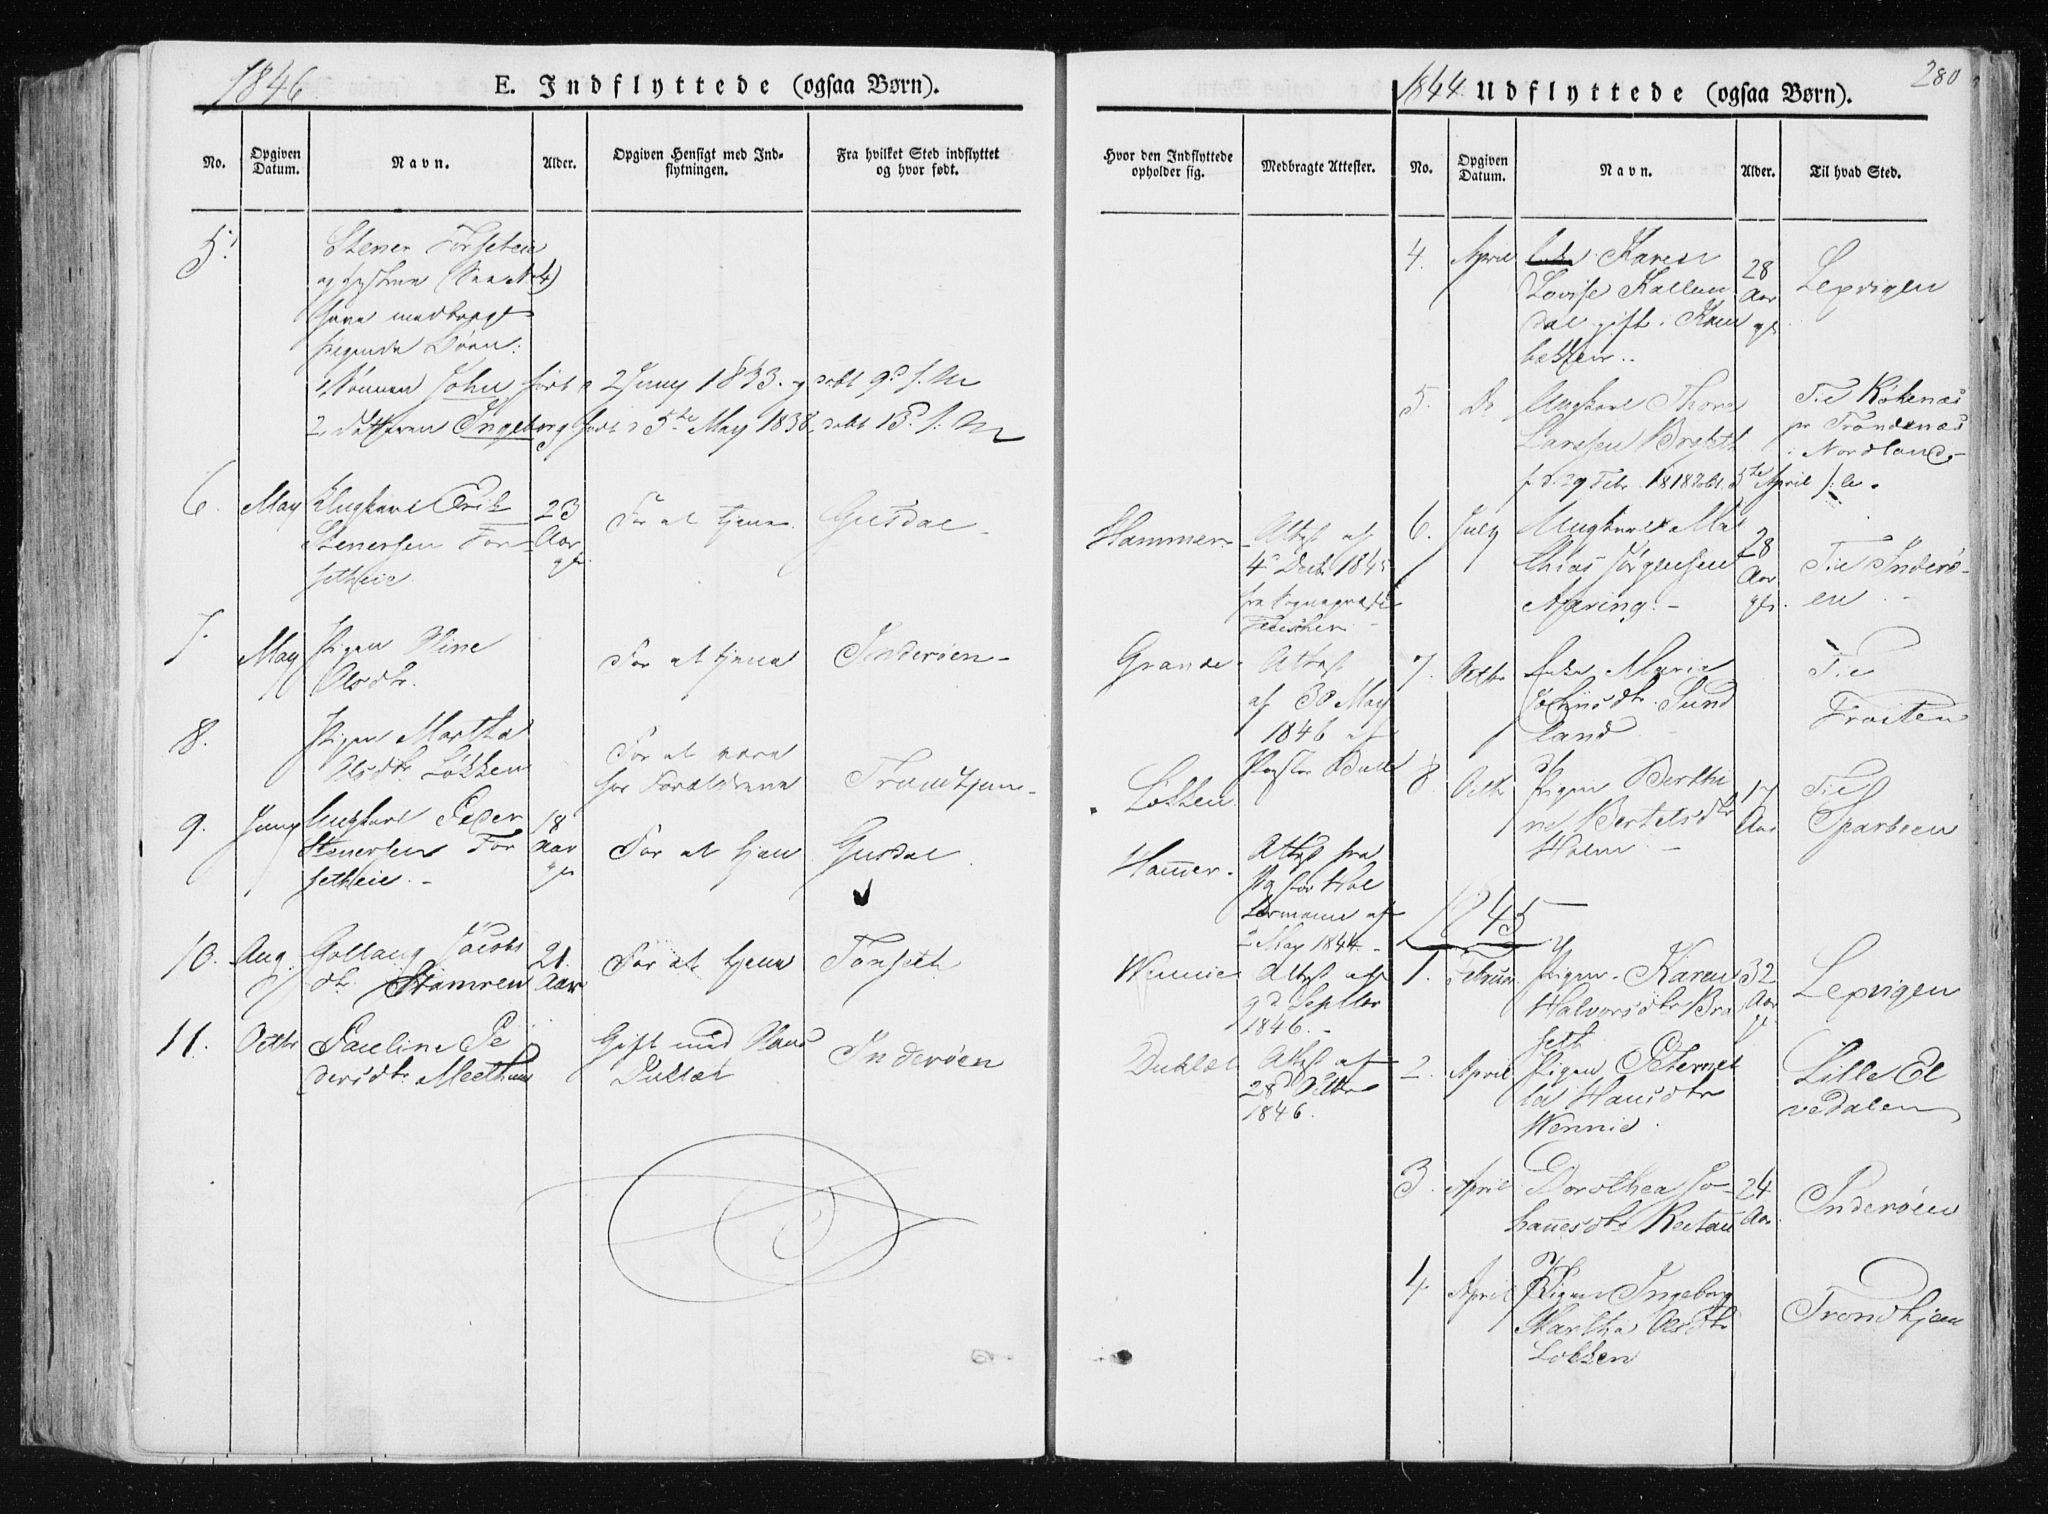 1846
E. Indflyttede (ogsaa Børn).
No.
Opgiven
Datum.
Navn.
Alder.
Opgiven Hensigt med Ind-
flytningen.
Fra hvilket Sted indflyttet
og hvor født.
5.
Stener Forseteie
og hustrue (See No 4)
have medbragt
følgende Børn:
1 Sønnen John født 2 Juny 1833. og døbt 9d s. M
2 Datteren Ingeborg født 5te May 1838, døbt 13d s. M
6.
May
Ungkarl Erik
Stenersen For
setheie
23
Aar
gl.
For at tjene
Gusdal
7.
May
Pigen Oline
Olsdtr.
For at tjene
Inderøen
8.
Pigen Martha
Olsdtr Løkken
For at være
hos Forældrene
Trondhjem
9.
Juny
Ungkarl Peder
Stenersen For
setheie.
18
Aar
gl.
For at tjene
Gusdal
10.
Aug.
Jacobs
dtr. Stamren
21.
Aar
For at tjene
Tønset
11.
Octbr
Pauline Pe
dersdtr.
Gift med
Duklæt
Inderøen
Hvor den Indflyttede
opholder sig.
Medbragte Attester.
Hammer.
Attest af
4de Decbr 1845
fra Sognepræst
Fleischer
Grande
Attest
af 30 May
1846 af
Pastor Bull
Løkken
Hammer.
Attest fra
Pastor Hol
af
2 May 1844.
Wennie
Attest af
9d Septbr
1846.
Duklæt
Attest af
28d Octbr
1846.
280
1844 Udflyttede (ogsaa Børn).
No.
Opgiven
Datum.
Navn.
Alder.
Til hvad Sted.
4.
April
Karen
Lovise Kallem
dal gift. Kram
bakken.
28
Aar
gl.
Lexvigen
5.
Do
Ungkarl Thore
Larssen
f. d. 29 Febr. 1818 døbt. 5te April s. A.
Til Røkenæs
pr Trondenæs
i Nordland
6.
July
Ungkarl Ma
thias Jørgensen
28
Aar
gl.
Til Inderø-
en
7.
Octbr
Enke Maria
Sund
land
Til
Frosten
8
Octbr
Pigen Bertha
ne Bertelsdtr
Holm
17
Aar
Til
Sparboen
1845
1.
Februar
Pigen Karen
Halvorsdtr Bra
seth
32
Aar
gl.
Lexvigen
2.
April
Pigen Peternel
la Hansdtr
Wennie.
Lille El
vedalen
3.
April
Dorothea Jo-
hannesdtr
24
Aar
Inderøen
4.
April
Pigen Ingeborg
Martha Olsdtr
Løkken
Trondhjem